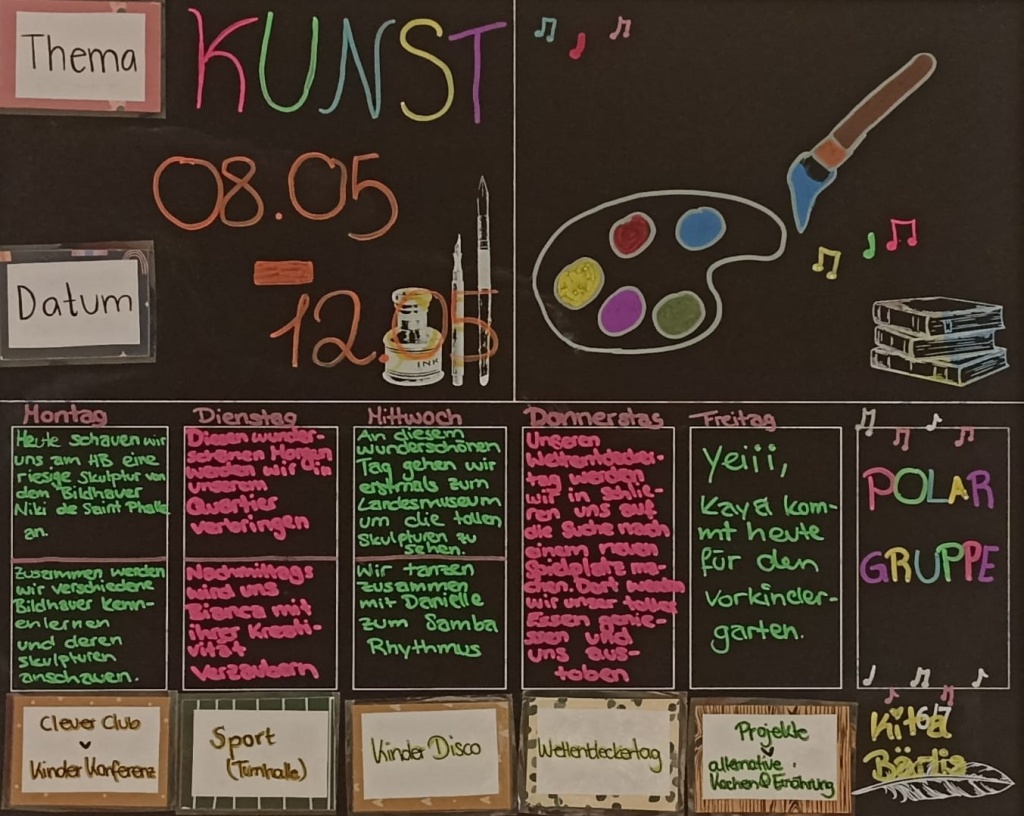 Thema
KUNST
08.05
-
Datum
12.05
INK
Montag
Heute schauen wir
uns am HB eine
riesige Skulptur von
dem Bildhauer
Niki de Saint Phalle
an.
Zusammen werden
wir verschiedene
Bildhauer kenn-
enlernen
und deren
skulpturen
anschauen.
Clever Club
Kinder Konferenz
Dienstag
Diesen wunder-
schönen Morgen
werden wir in
unserem
Quartier
verbringen
Nachmittags
wird uns
Bianca mit
ihrer Kreati-
vität
verzaubern
Sport
(Turnhalle)
Mittwoch
An diesem
wunderschönen
Tag gehen wir
erstmals zum
Landesmuseum
um die tollen
skulpturen zu
sehen.
Wir tanzen
zusammen
mit Danielle
zum Samba
Rhythmus
Kinder Disco
Donnerstag
Unseren
Weltentdecker-
tag werden
wir in schlie-
ren uns auf
die Suche nach
einem neuen
Spielplatz ma-
chen. Dort
wir unser
Essen genie-
ssen und
uns aus-
toben
Weltentdeckertag
Freitag
Yeiii,
Kaya kom-
mt heute
für den
vorkinder-
garten.
Projekte
alternative
Kochen & Ernährung
POLAR
GRUPPE
Kita
6/7
Bärlis